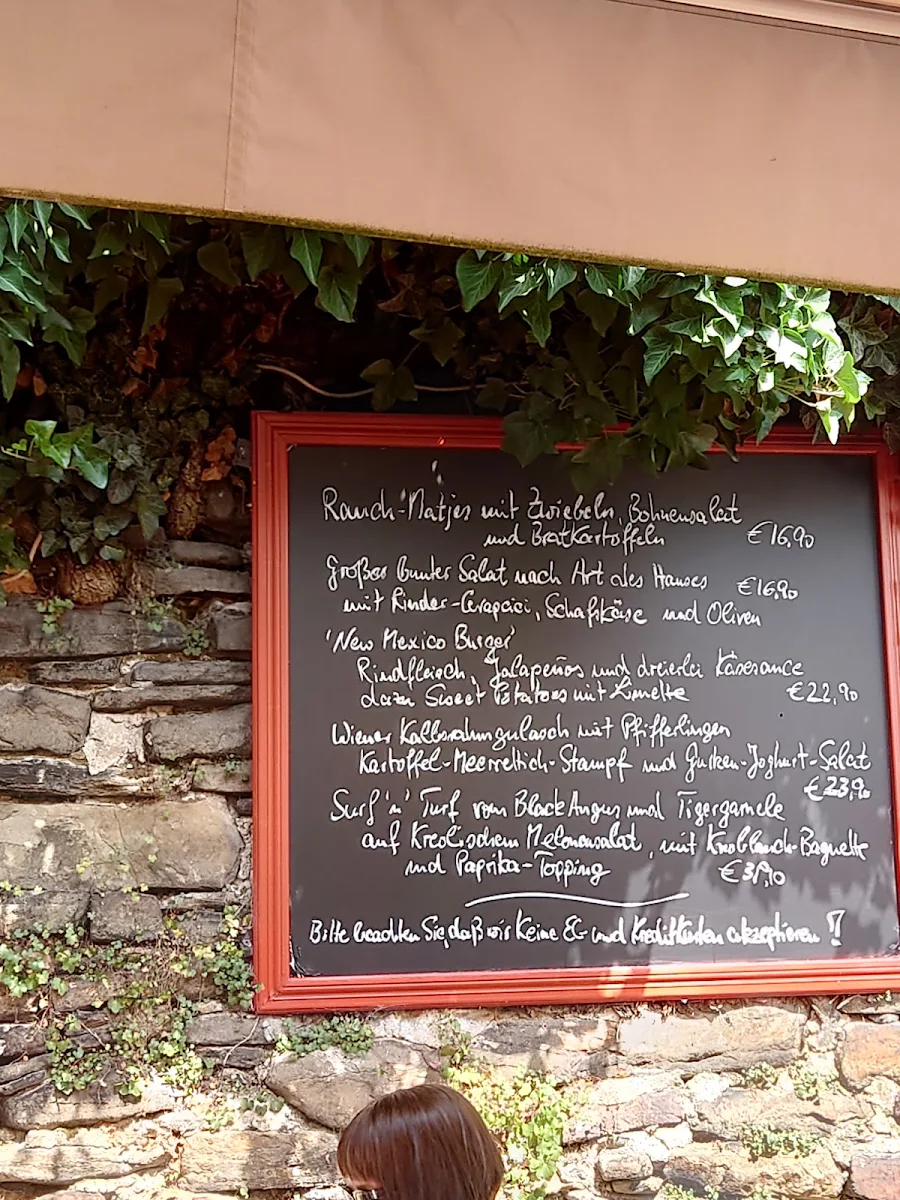 Rauch-Matjes mit Zwiebeln, Bohnensalat
und Bratkartoffeln €16,90
Großer bunter Salat nach Art des Hauses €16,90
mit Rinder-Cevapcici, Schafskäse und Oliven
'New Mexico Burger'
Rindfleisch, Jalapeños und dreierlei Käsesauce
dazu Sweet Potatoes mit Limette €22,90
Wiener Kalbsrahmgulasch mit Pfifferlingen
Kartoffel-Meerrettich-Stampf und Gurken-Joghurt-Salat
€23,90
Surf 'n' Turf vom Black Angus und Tigergarnele
auf Kreolischem Melonensalat, mit Knoblauch-Baguette
und Paprika-Topping
Bitte beachten Sie, daß wir Keine EC- und Kreditkarten akzeptieren!